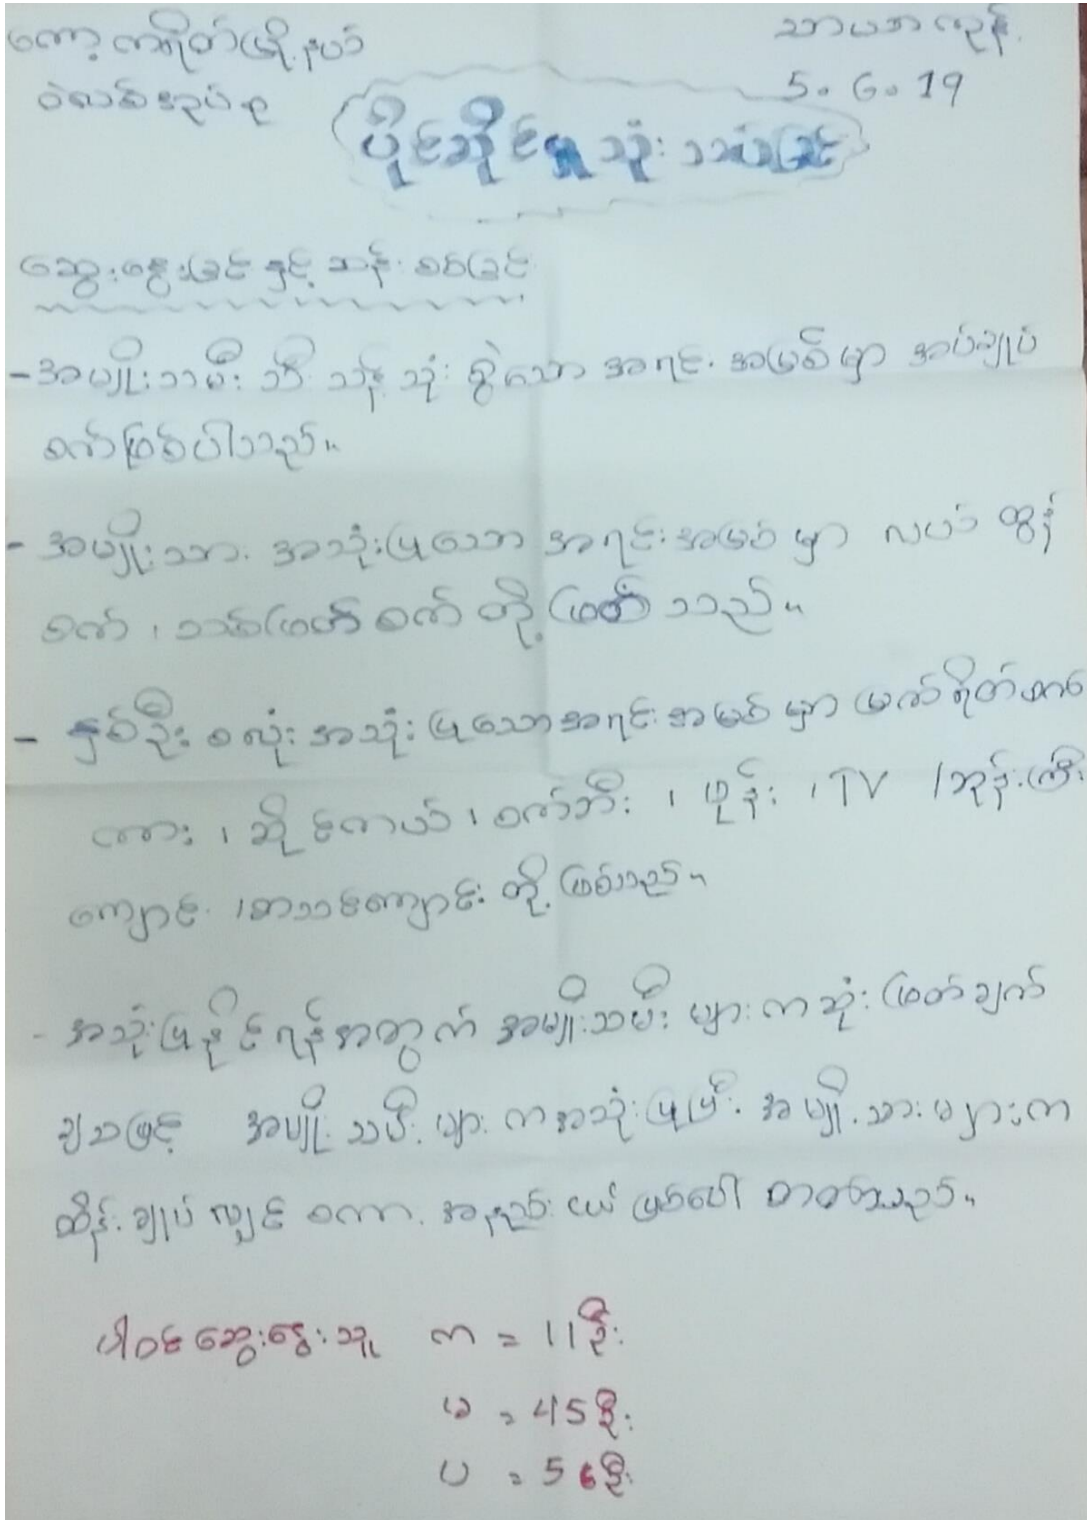 ကော့ကရိတ်မြို့နယ်
သာမညကုန်း
ဝဲလစ်အုပ်စု
5.6.19
ပိုင်ဆိုင်မှုသုံးသပ်ခြင်း
ဆွေးနွေးခြင်းနှင့်ဆန်းစစ်ခြင်း
- အမျိုးသမီးသီးသန့်သုံးစွဲသောအရင်းအမြစ်မှာ အပ်ချုပ်
စက်ဖြစ်ပါသည်။
- အမျိုးသားအသုံးပြုသောအရင်းအမြစ်မှာ လယ်ထွန်
စက်၊ သစ်ဖြတ်စက်တို့ဖြစ်သည်။
- နှစ်ဦးစလုံးအသုံးပြုသောအရင်းအမြစ်မှာ မြက်ရိတ်စက်
ကား၊ ဆိုင်ကယ်၊ စက်ဘီး၊ ဖုန်း၊ TV ၊ ဘုန်းကြီး
ကျောင်း၊ စာသင်ကျောင်းတို့ဖြစ်သည်။
- အသုံးပြုနိုင်ရန်အတွက် အမျိုးသမီးများကဆုံးဖြတ်ချက်
ချသဖြင့် အမျိုးသမီးများကအသုံးပြုပြီး အမျိုးသားများက
ထိန်းချုပ်လျှင် စကားအနည်းငယ်ဖြစ်ပေါ်တတ်သည်။
ပါဝင်ဆွေးနွေးသူ က = 11ဦး
မ = 45ဦး
ပ = 56ဦး